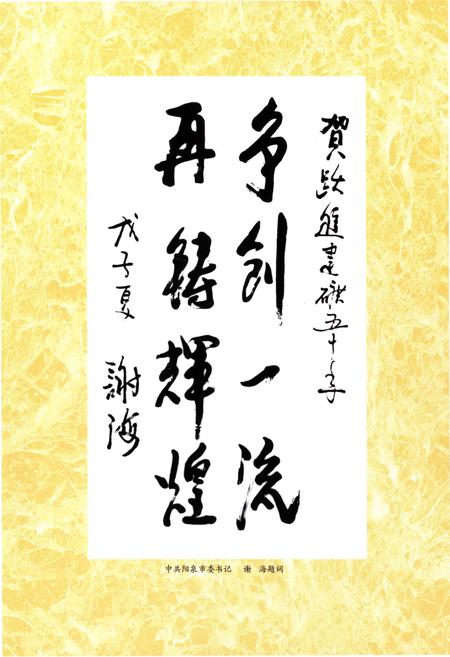 賀跃進建礦五十年
争创一流
再鑄輝煌
戊子夏
謝海
中共阳泉市委书记 谢 海题词